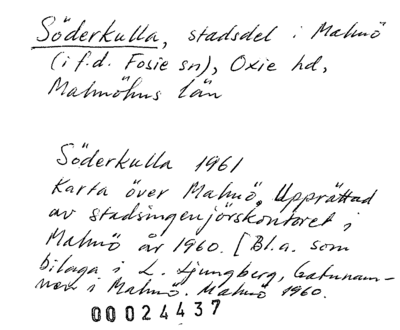 Söderkulla, stadsdel i Malmö
(i f.d. Fosie sn), Oxie hd,
Malmöhus län
Söderkulla 1961
Karta över Malmö. Upprättad
av stadsingenjörskontoret i
Malmö år 1960. [Bl.a. som
bilaga i L. Ljungberg, Gatunam-
nen i Malmö. Malmö 1960.
00024437